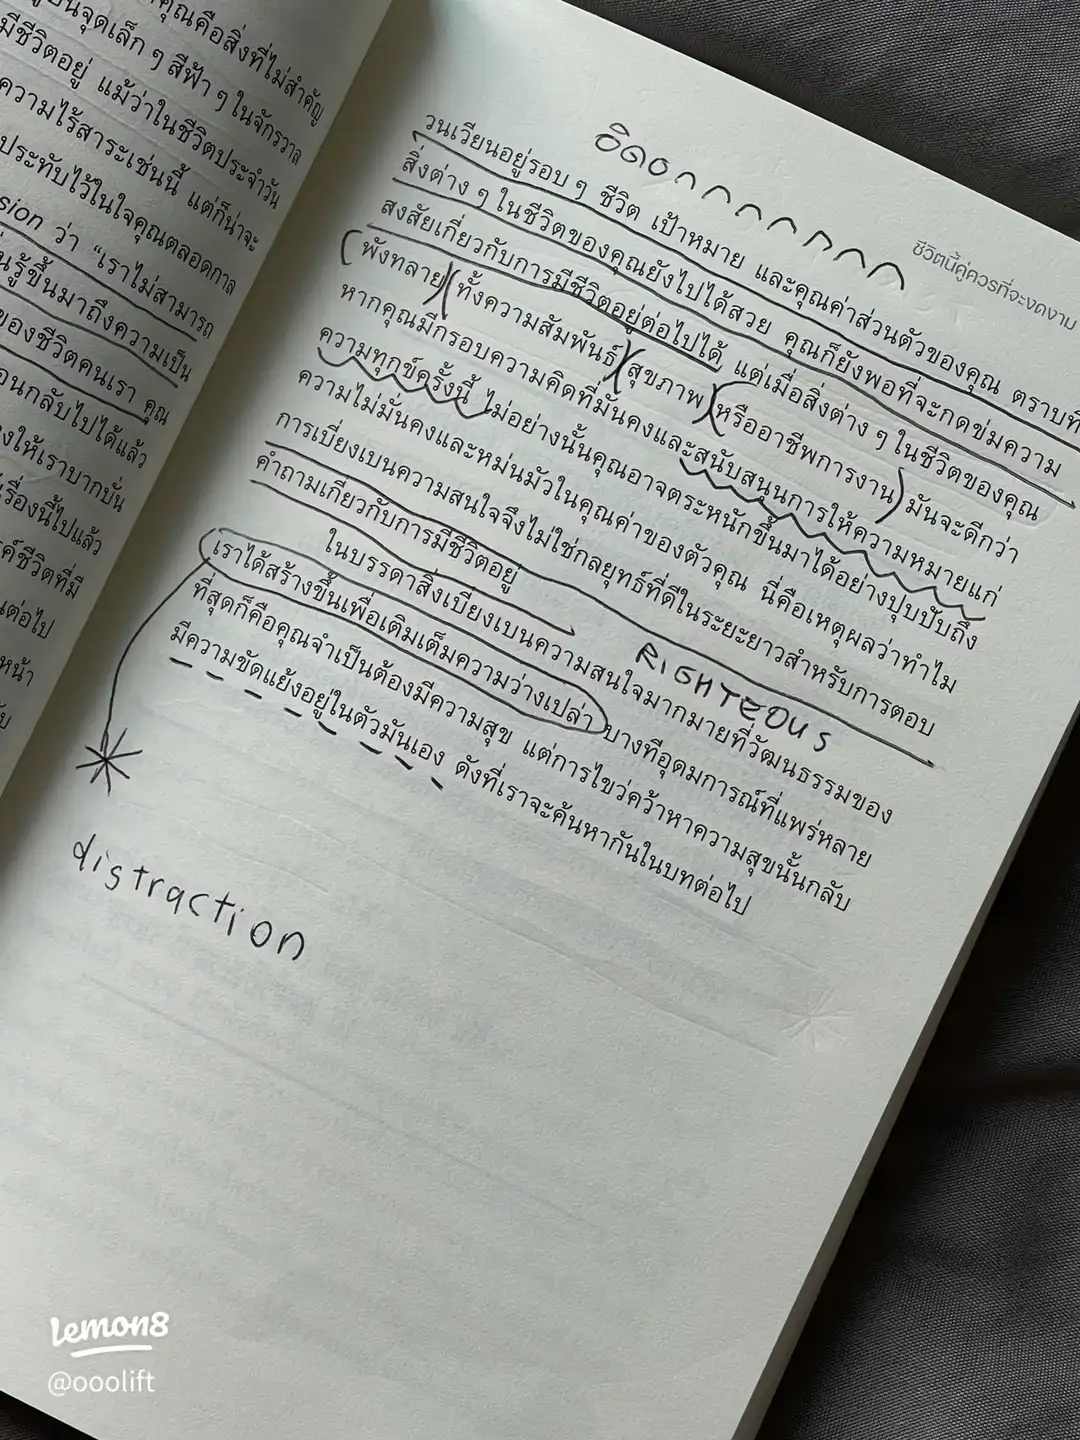 คุณคือสิ่งที่ไม่สำคัญ
เป็นจุดเล็ก ๆ สีฟ้า ๆ ในจักรวาล
มีชีวิตอยู่ แม้ว่าในชีวิตประจำวัน
ความไร้สาระเช่นนี้ แต่ก็น่าจะ
ประทับไว้ในใจคุณตลอดกาล
sion ว่า “เราไม่สามารถ
รู้ขึ้นมาถึงความเป็น
ของชีวิตคนเรา คุณ
กลับไปได้แล้ว
ให้เราบากบั่น
เรื่องนี้ไปแล้ว
ชีวิตที่มี
ต่อไป
หน้า
ชีวิตนี้คู่ควรที่จะงดงาม
อิดอกกกกกกกก
วนเวียนอยู่รอบ ๆ ชีวิต เป้าหมาย และคุณค่าส่วนตัวของคุณ ตราบที่
สิ่งต่าง ๆ ในชีวิตของคุณยังไปได้สวย คุณก็ยังพอที่จะกดข่มความ
สงสัยเกี่ยวกับการมีชีวิตอยู่ต่อไปได้ แต่เมื่อสิ่งต่าง ๆ ในชีวิตของคุณ
พังทลาย ทั้งความสัมพันธ์ สุขภาพ หรืออาชีพการงาน มันจะดีกว่า
หากคุณมีกรอบความคิดที่มั่นคงและสนับสนุนการให้ความหมายแก่
ความทุกข์ครั้งนี้ ไม่อย่างนั้นคุณอาจตระหนักขึ้นมาได้อย่างปุบปับถึง
ความไม่มั่นคงและหม่นมัวในคุณค่าของตัวคุณ นี่คือเหตุผลว่าทำไม
การเบี่ยงเบนความสนใจจึงไม่ใช่กลยุทธ์ที่ดีในระยะยาวสำหรับการตอบ
คำถามเกี่ยวกับการมีชีวิตอยู่
RIGHTEOUS
ในบรรดาสิ่งเบี่ยงเบนความสนใจมากมายที่วัฒนธรรมของ
เราได้สร้างขึ้นเพื่อเติมเต็มความว่างเปล่า บางทีอุดมการณ์ที่แพร่หลาย
ที่สุดก็คือคุณจำเป็นต้องมีความสุข แต่การไขว่คว้าหาความสุขนั้นกลับ
มีความขัดแย้งอยู่ในตัวมันเอง ดังที่เราจะค้นหากันในบทต่อไป
distraction
Lemon8
@ooolift